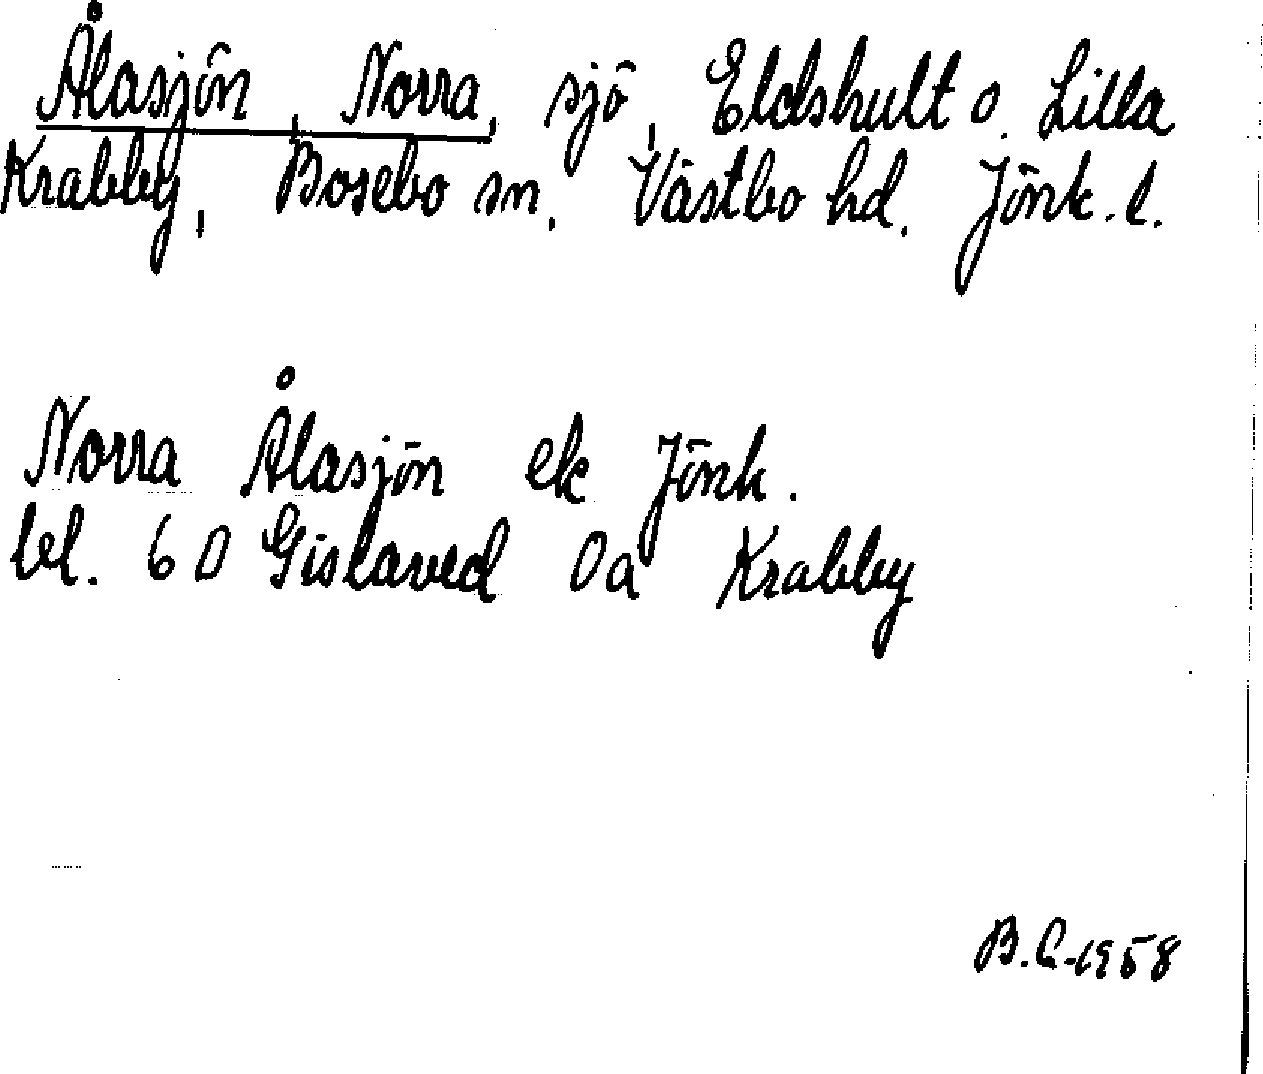 Ålasjön, Norra, sjö, Eldshult o. Lilla
Krabby, Bosebo sn, Västbo hd. Jönk. l.
Norra Ålasjön ek Jönk.
bl. 60 Gislaved Oa Krabby
1958